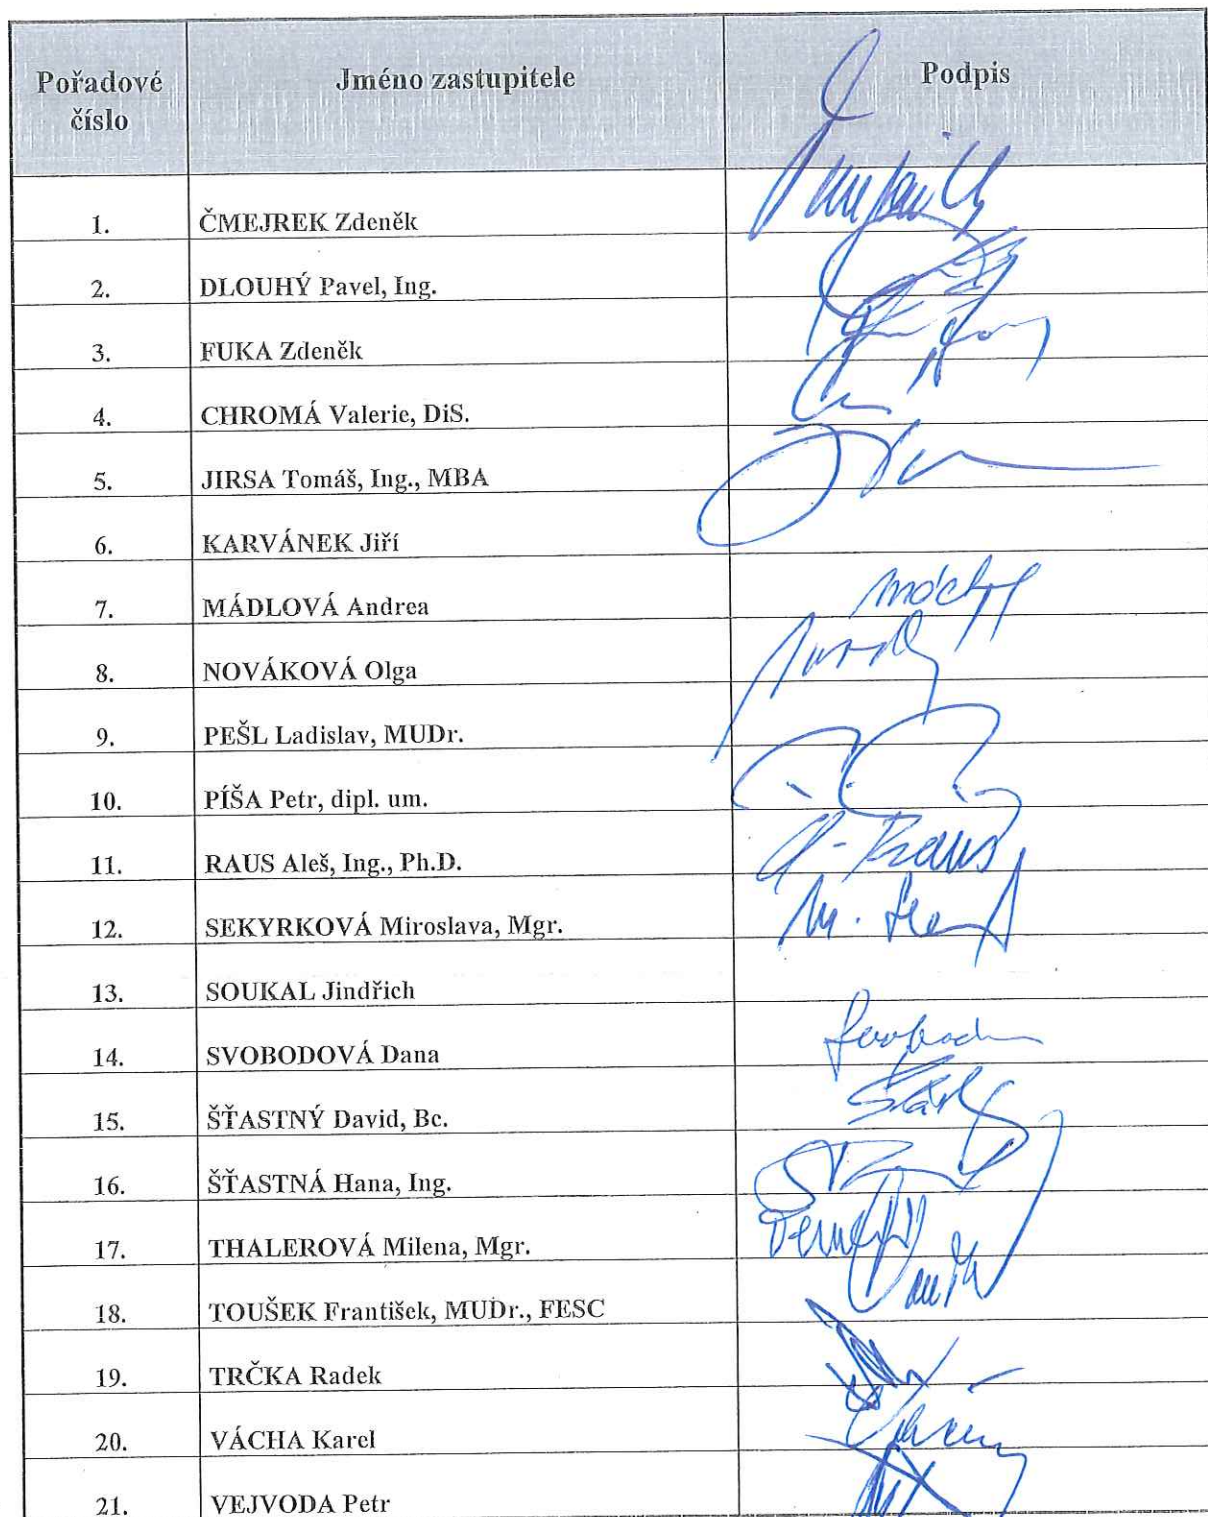 Pořadové číslo Jméno zastupitele Podpis
1. ČMEJREK Zdeněk
2. DLOUHÝ Pavel, Ing.
3. FUKA Zdeněk
4. CHROMÁ Valerie, DiS.
5. JIRSA Tomáš, Ing., MBA
6. KARVÁNEK Jiří
7. MÁDLOVÁ Andrea
8. NOVÁKOVÁ Olga
9. PEŠL Ladislav, MUDr.
10. PÍŠA Petr, dipl. um.
11. RAUS Aleš, Ing., Ph.D.
12. SEKYRKOVÁ Miroslava, Mgr.
13. SOUKAL Jindřich
14. SVOBODOVÁ Dana
15. ŠŤASTNÝ David, Bc.
16. ŠŤASTNÁ Hana, Ing.
17. THALEROVÁ Milena, Mgr.
18. TOUŠEK František, MUDr., FESC
19. TRČKA Radek
20. VÁCHA Karel
21. VEJVODA Petr